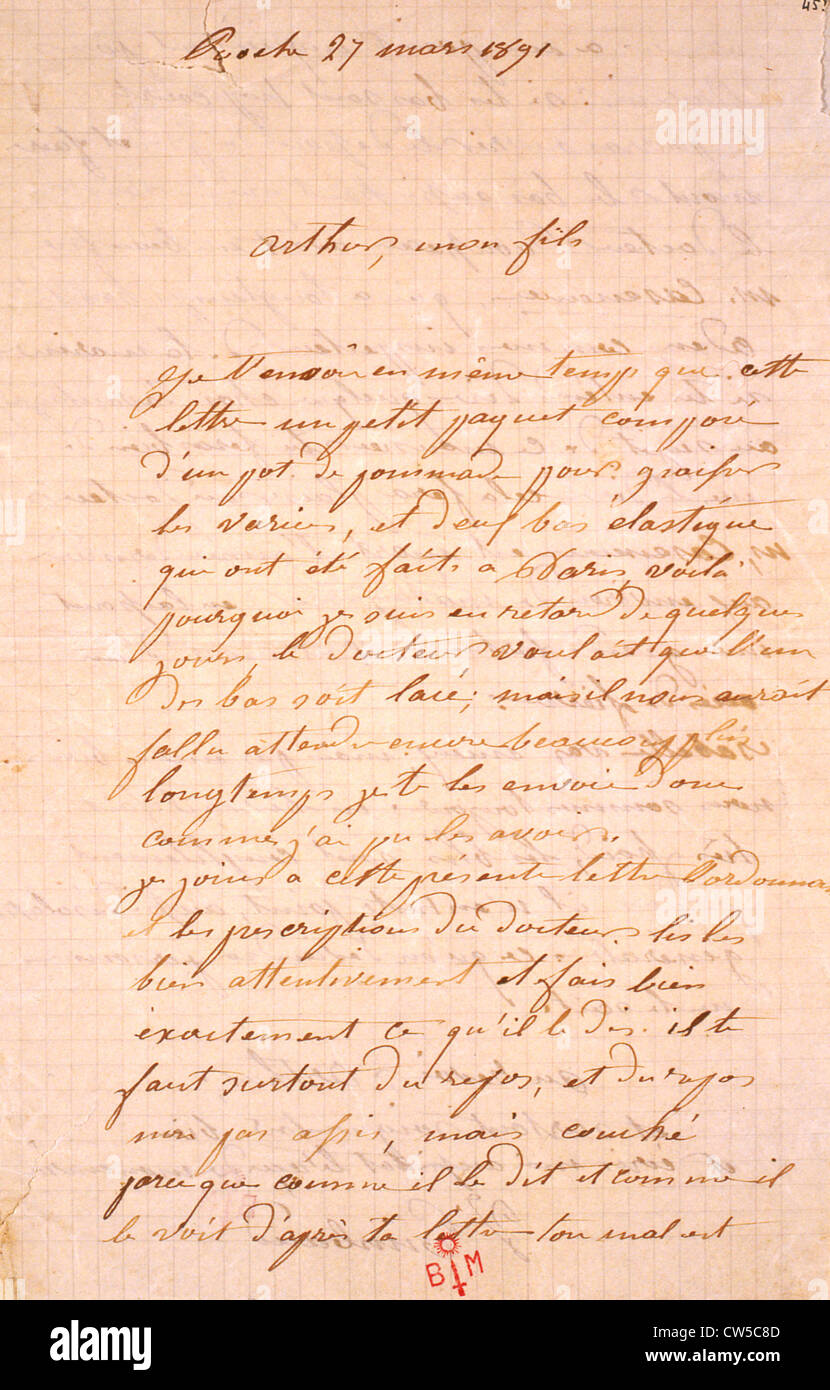 Roche 27 mars 1891
Arthur, mon fils
Je t'envoie en même temps que cette
lettre un petit paquet composé
d'un pot de pommade pour graisser
les varices, et deux bas élastique
qui ont été faits a Paris, voilà
pourquoi je suis en retard de quelques
jours, le docteur voulait que l'un
des bas soit lacé; mais il nous aurait
fallu attendre encore beaucoup plus
longtemps je te les envoie donc
comme j'ai pu les avoir.
je joins a cette présente lettre l'ordonnance
et les prescriptions du docteur. lis les
bien attentivement et fais bien
exactement ce qu'il te dis. il te
faut surtout du repos, et du repos
non pas assis, mais couché
parce que comme il le dit et comme il
le voit d'après ta lettre ton mal est
B M
alamy
Image ID: CW5C8D
www.alamy.com